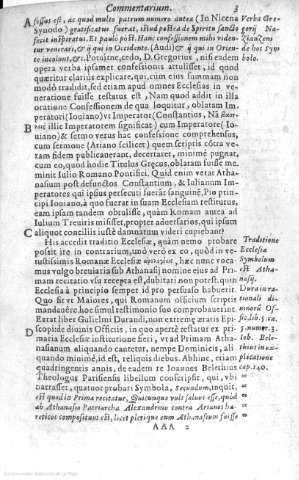 Commentarium. 3
A fissus est, ac quod multo patrum numero antea (In Nicena
Synodo) gratificatus fuerat, istud postea de Spiritu sancto
fecit inspiratus. Et paulò post. Hanc confessionem mihi viden-
tur venerari, & ij qui in Occidente, (Audi) & ij qui in Orien-
te incolunt, &c. Potuitne, cedo, D. Gregorius, nisi eadem
opera verba ipsamet confessionis attulisset, id quod
quæritur clarius explicare, qui, cum eius summam non
modò tradidit, sed etiam apud omnes Ecclesias in vene-
ratione fuisse testatus est, Nam quod addit in illa
oratione Confessionem de qua loquitur, oblatam Im-
peratori (Iouiano) vs Imperator (Constantius, Nã
B illic Imperatorem significat) cum Imperatore (Io-
uiano) & sermo verus hac confessione comprehensus,
cum sermone (Ariano scilicet) quem scriptis côtra ve-
ram fidem publicauerant, decertaret, minimè pugnat,
cum eo, quod hodie Titulus Græcus, oblatam fuisse me-
minit Iulio Romano Pontifici. Quid enim vetat Atha-
nasium post defunctos Constantium, & Iulianum Im-
peratores qui ipsius persecuti fuerāt sanguinē, Pio prin-
cipi Iouiano, à quo fuerat in suam Ecclesiam restitutus,
eam ipsam tandem obtulisse, quàm Romam antea ad
Iulium Treuiris misisset, propter aduersarios, qui ipsum
C aliquot conciliis iustè damnatum videri cupiebant?
His accedit traditio Ecclesiæ, quàm nemo probare
possit ire in contrarium, imò verò ex eo, quòd in ve-
tustissimis Romanæ Ecclesiæ hæc nunc voca-
mus vulgo breuiaria sub Athanasij nomine eius ad Pri-
mam recitatio vsu recepta est, dubitari non potest, quin
Ecclesia à principio semper id pro persuaso habuerit.
Quo sit vt Maiores, qui Romanum officium scriptis
mandauêre, hoc simul testimonio suo comprobauerint.
Extat liber Gulielmi Durandi, non extremę ætatis Epi-
D scopide diuinis Officiis, in quo apertè testatur ex pri-
maria Ecclesiæ institutione fieri, vt ad Primam Atha-
nasianum aliquando canetetur, nempe Dominicis, ali-
quando minimè, id est, reliquis diebus. Abhinc, etiam
quadringentis annis, de eadem re Ioannes Belethius
Theologus Parisiensis libellum conscripsit, qui, vbi
narrasset, quatuor probari Symbola, secundum, inquit,
est quod in Prima recitatur, Quicunque vult saluus esse, quod
ab Athanasio Patriarcha Alexandrino contra Arianos hæ-
reticos compositum est, licet plerique eum Athanasium fuisse
AAA 2
Verba Gre-
gorij Na-
zianzeni
de hoc Sym
bolo.
Traditione
Ecclesiæ
Symbolum
est Atha-
nasij.
Durā in ra-
tionali di-
uinorū Of-
fic. lib. 5. ca.
5. numer. 3.
Ioh. Bele-
thius in ex-
plicatione
cap. 140.